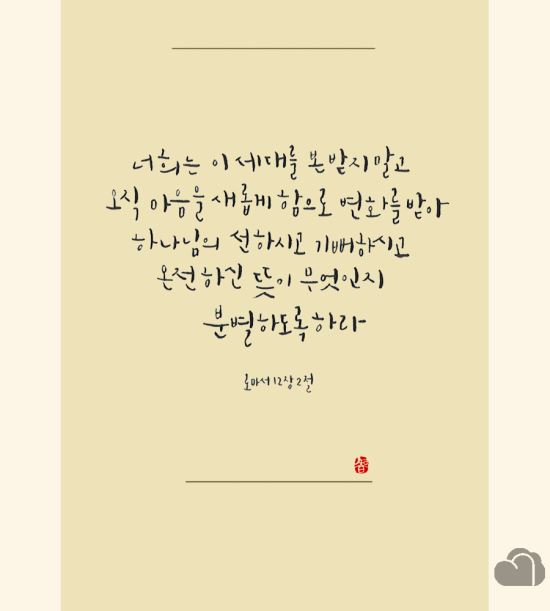 너희는 이 세대를 본받지 말고
오직 마음을 새롭게 함으로 변화를 받아
하나님의 선하시고 기뻐하시고
온전하신 뜻이 무엇인지
분별하도록 하라
로마서 12장 2절